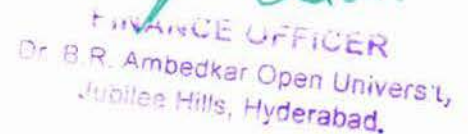 FINANCE OFFICER
Dr. B.R. Ambedkar Open Universit,
Jubilee Hills, Hyderabad.